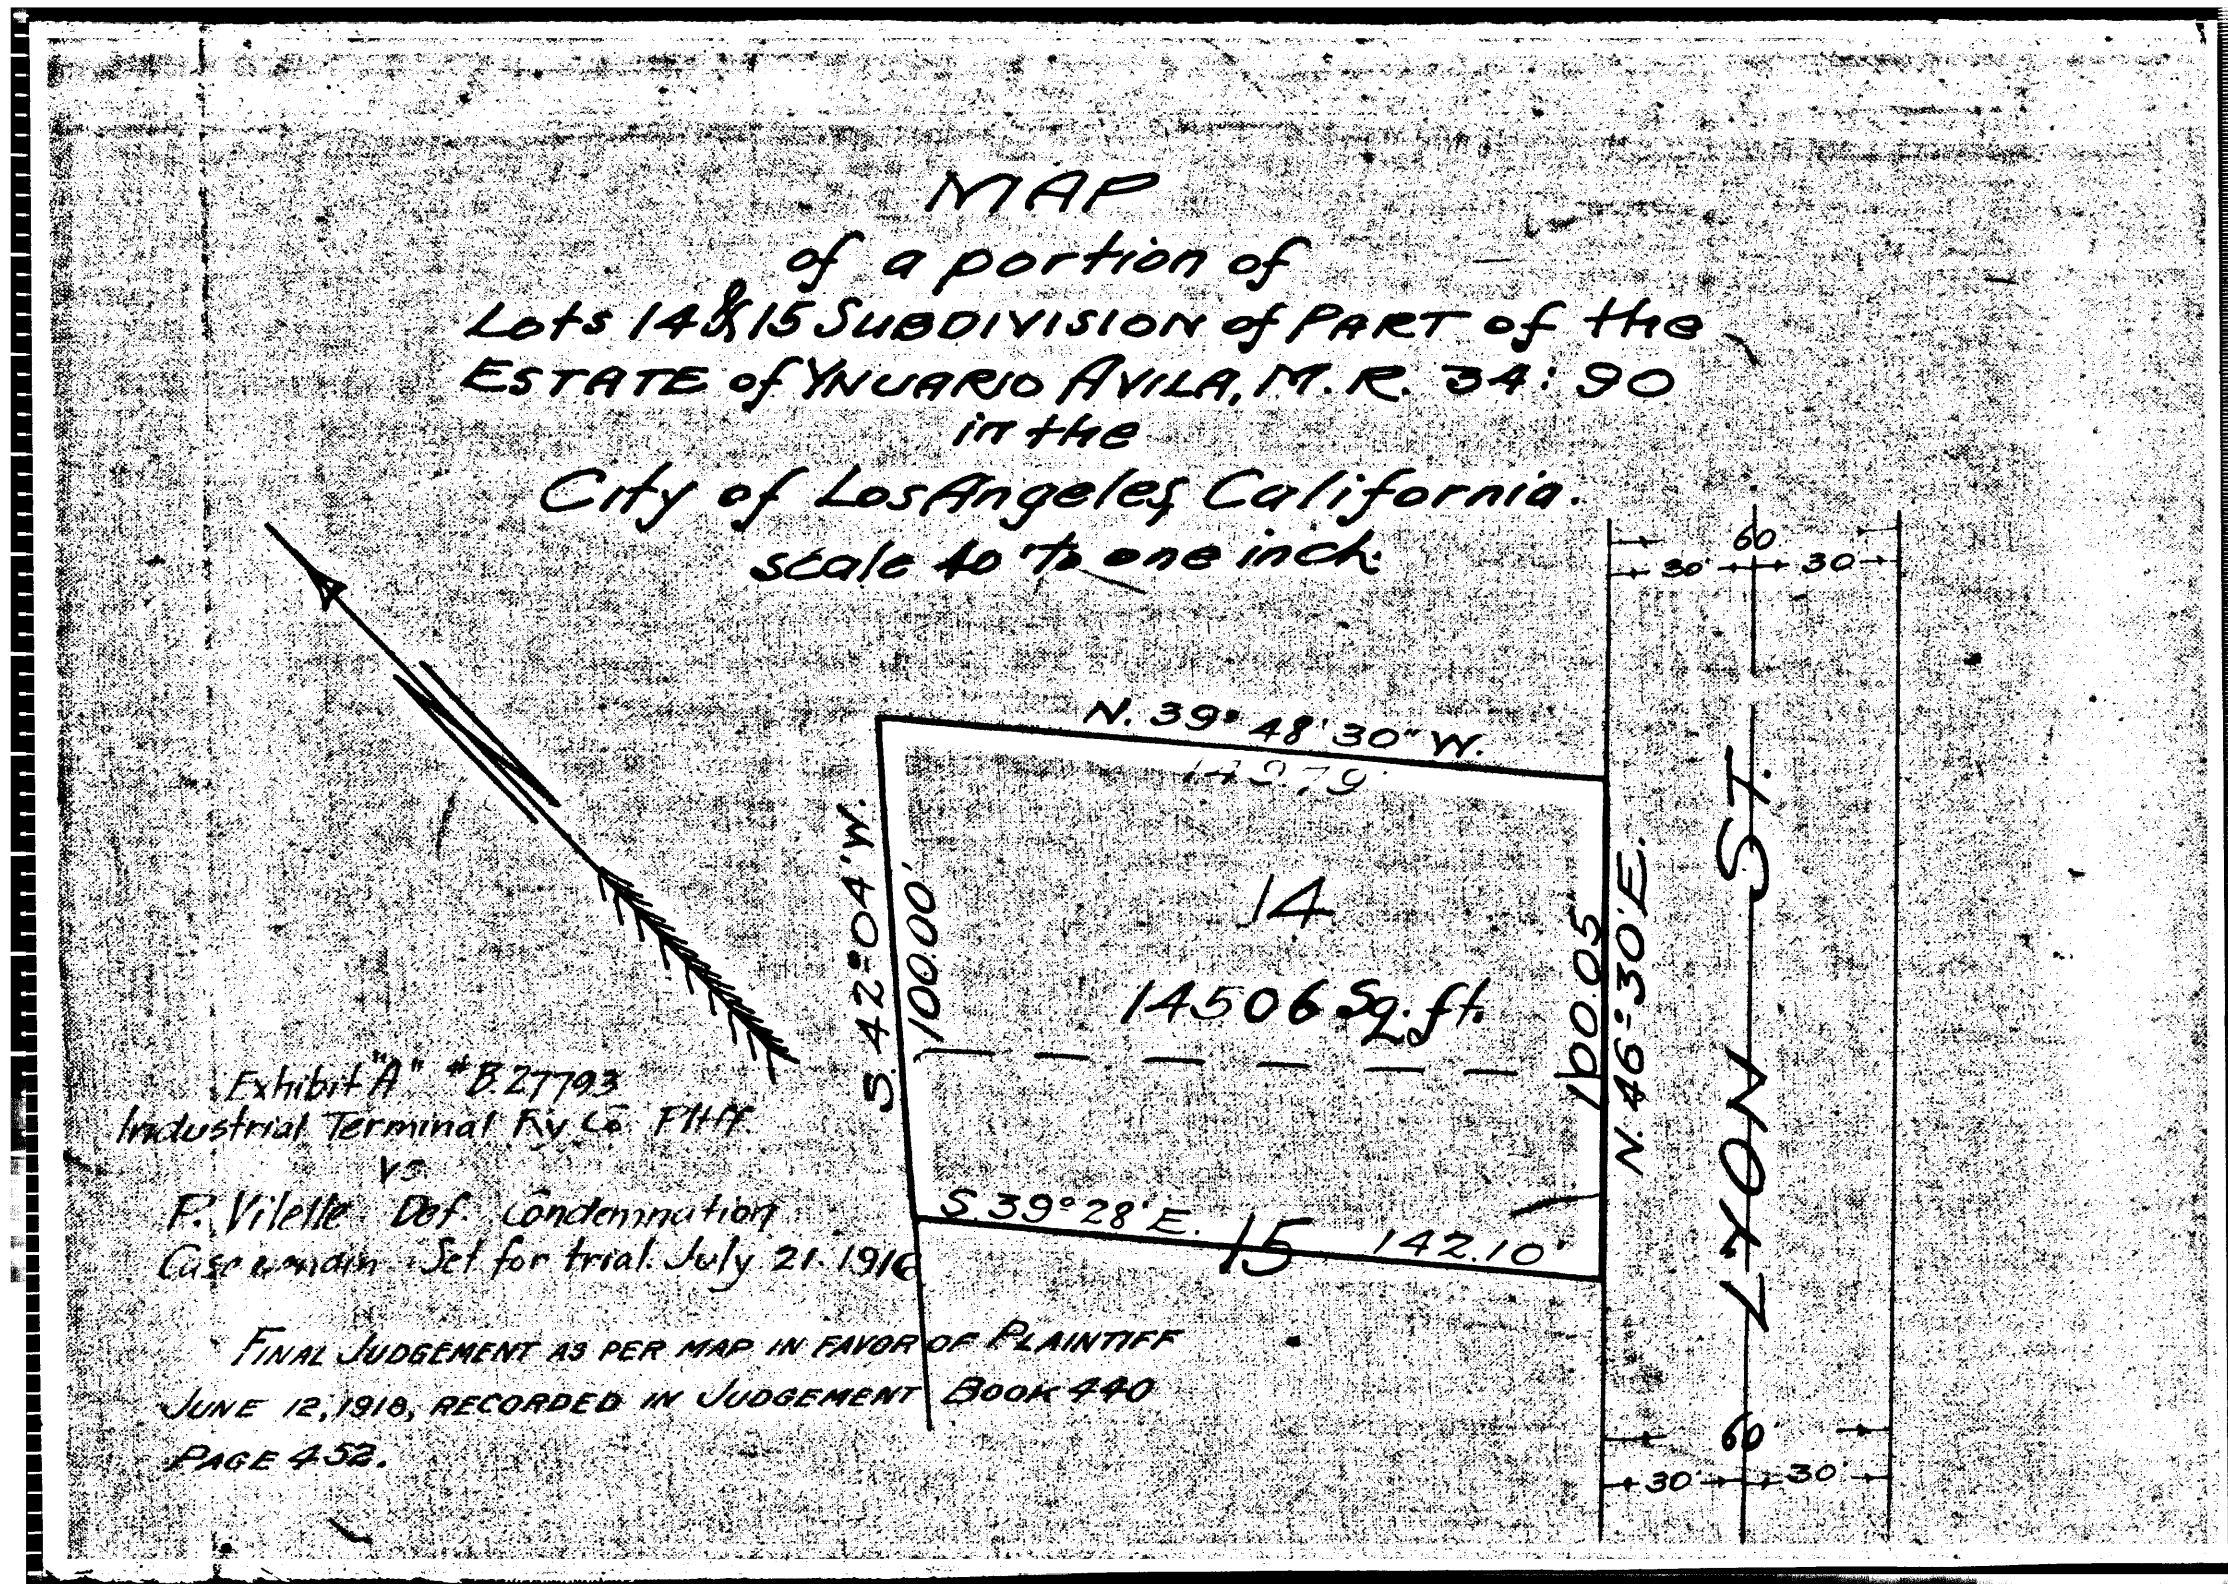 MAP
of a portion of
Lots 14 & 15 SUBDIVISION of PART of the
ESTATE of YNUARIO AVILA, M. R. 34: 90
in the
City of Los Angeles, California.
scale 40' to one inch.
60
30' 30
N. 39° 48' 30" W.
149.79'
S. 42° 04' W.
100.00'
14
14506 Sq. ft.
100.05'
N. 46° 30' E.
LYON ST.
S. 39° 28' E. 15 142.10'
Exhibit "A" #B.27793
Industrial Terminal Ry Co Pltff.
vs
P. Vilette Def. Condemnation
Case Set for trial. July 21. 1916
FINAL JUDGEMENT AS PER MAP IN FAVOR OF PLAINTIFF
JUNE 12, 1918, RECORDED IN JUDGEMENT BOOK 440
PAGE 452.
60'
30' 30'